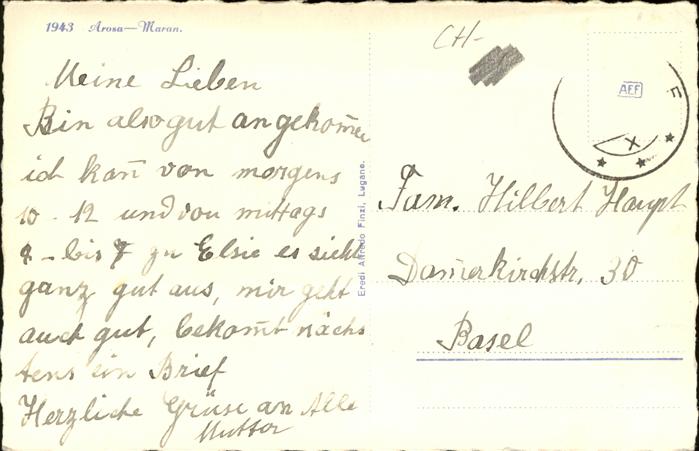 1943 Arosa—Maran.
CH-
AEF
Meine Lieben
Bin also gut angekom̄en
ich kan̄ von morgens
10 - 12 und von mittags
- bis 7 zu Elsie es sieht
ganz gut aus, mir geht
auch gut, bekom̄t nächs
tens ein Brief
Herzliche Grüse an Alle
Mutter
Eredi Alfredo Finzi, Lugano.
Fam. Hilbert Haupt
Dam̄erkirchstr. 30
Basel